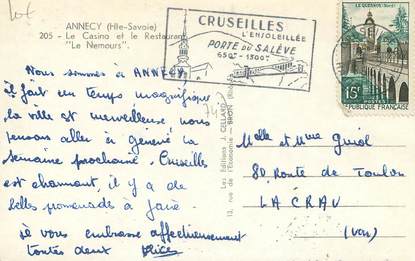 ANNECY (Hte-Savoie)
205 - Le Casino et le Restaurant
"Le Nemours".
CRUSEILLES
L'ENSOLEILLÉE
PORTE DU SALÈVE
650m - 1300m
LE QUESNOY (Nord)
15F
POSTES
RÉPUBLIQUE FRANÇAISE
Nous sommes à ANNECY
il fait un temps magnifique
la ville est merveilleuse nous
pensons aller à genève la
semaine prochaine. Cruseilles
est charmant, il y a de
belles promenades à faire
je vous embrasse affectueusement
toutes deux Alice
Les Editions J. CELLARD
13, rue de l'Economie - BRON (Rhône)
Melle et Mme Guiol
80, Route de Toulon
LA CRAU
(Var)